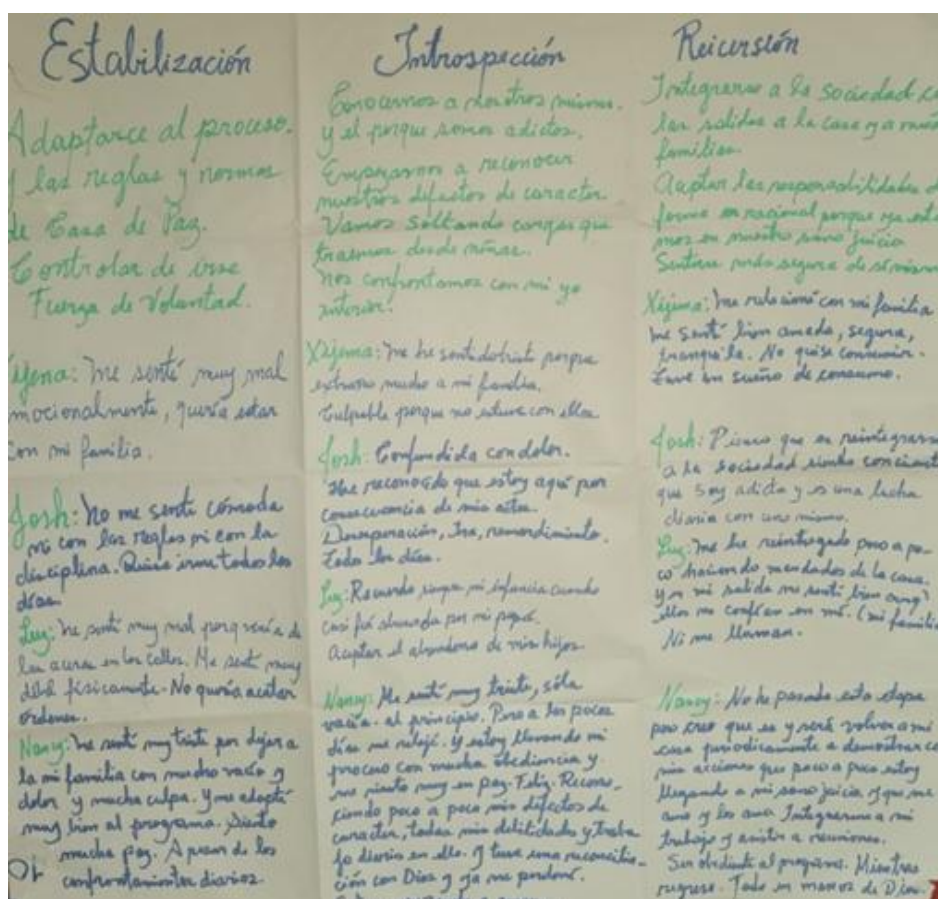 Estabilización
Adaptarce al proceso.
y las reglas y normas
de Casa de Paz.
Controlar de irse
Fuerza de Voluntad.
me sentí muy mal
emocionalmente, quería estar
con mi familia.
Josh: No me sentí cómoda
ni con las reglas ni con la
disciplina. Quise irme todos los
días.
Luz: me sentí muy mal porq venía de
las aceras en las calles. Me sentí muy
débil físicamente. No quería acatar
órdenes.
Nancy: me sentí muy triste por dejar a
la mi familia con mucho vacío y
dolor y mucha culpa. Y me adapté
muy bien al programa. Siento
mucha paz. A pesar de los
confrontamientos diarios.
Introspección
Conocernos a nosotros mismos.
y el porque somos adictos.
Empezamos a reconocer
nuestros defectos de caracter.
Vamos soltando cargas que
traemos desde niñas.
Nos confrontamos con mi yo
interior.
Xijema: me he sentido triste porque
extraño mucho a mi familia.
Culpable porque no estuve con ellos
Josh: Confundida con dolor.
He reconocido que estoy aquí por
consecuencia de mis actos.
Desesperación, Ira, remordimiento.
todos los días.
Luz: Recuerdo siempre mi infancia cuando
casi fui abusada por mi papá.
Aceptar el abandono de mis hijos.
Nancy: Me sentí muy triste, sóla
vacía. al principio. Pero a los pocos
días me relajé. Y estoy llevando mi
proceso con mucha obediencia y
me siento muy en paz. Feliz. Recono-
ciendo poco a poco mis defectos de
caracter, todas mis debilidades y traba
jo diario en ello. Y tuve una reconcilia-
ción con Dios y ya me perdoné.
Reicersión
Integrarse a la sociedad
las salidas a la casa y a
familias.
Aceptar las responsabilidades de
forma porque ya esta
mos en nuestro sano juicio
Sentirse más segura de sí misma
Xijema: me relacioné con mi familia
me sentí bien amada, segura,
tranquila. No quise consumir.
Tuve un sueño de consumo.
Josh: Pienso que es reintegrarse
a la sociedad siendo conciente
que soy adicta y es una lucha
diaria con uno mismo.
Luz: me he reintegrado poco a po
co haciendo mandados de la casa.
Y en mi salida me sentí bien
ellos me confían en mí. (mi familia)
Ni me llaman.
Nancy: No he pasado esta etapa
pero creo que es y será volver a mi
casa periodicamente a demostrar
mis acciones que poco a poco estoy
llegando a mi sano juicio. y que me
amo y los amo. Integrarme a mi
trabajo y asistir a reuniones.
Ser obediente al programa. Mientras
regreso. Todo en manos de Dios.